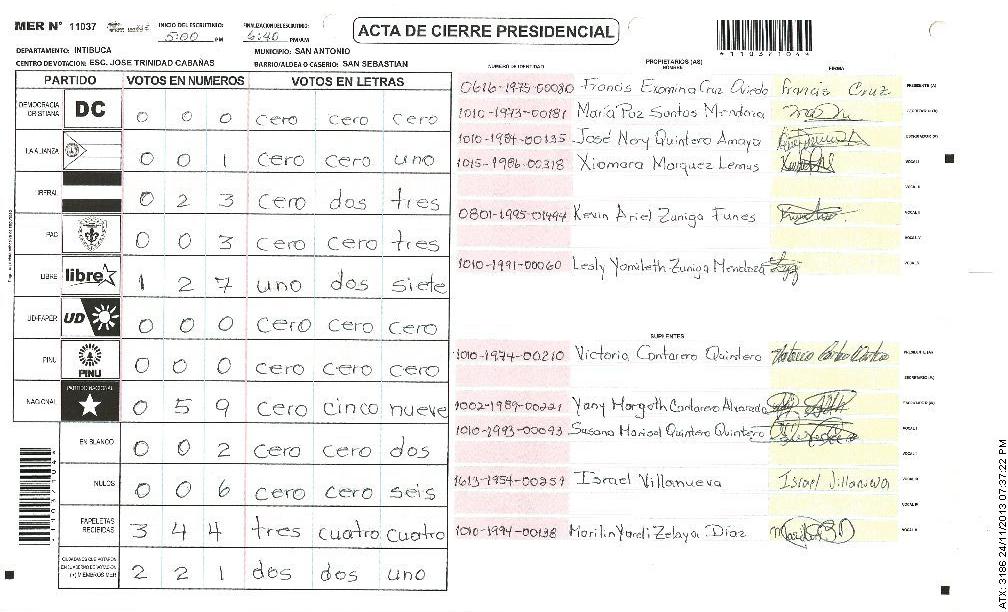 MER N° 11037
INICIO DEL ESCRUTINIO: 5:00 PM
FINALIZACION DEL ESCRUTINIO: 6:40 PM/AM
ACTA DE CIERRE PRESIDENCIAL
110371044
DEPARTAMENTO: INTIBUCA
MUNICIPIO: SAN ANTONIO
CENTRO DE VOTACION: ESC. JOSE TRINIDAD CABAÑAS
BARRIO/ALDEA O CASERIO: SAN SEBASTIAN
PARTIDO VOTOS EN NUMEROS VOTOS EN LETRAS
DEMOCRACIA CRISTIANA DC 0 0 0 cero cero cero
LA ALIANZA 0 0 1 cero cero uno
LIBERAL 0 2 3 cero dos tres
PAC 0 0 3 cero cero tres
LIBRE libre 1 2 7 uno dos siete
UD-FAPER UD 0 0 0 cero cero cero
PINU PINU 0 0 0 cero cero cero
NACIONAL PARTIDO NACIONAL 0 5 9 cero cinco nueve
EN BLANCO 0 0 2 cero cero dos
NULOS 0 0 6 cero cero seis
PAPELETAS RECIBIDAS 3 4 4 tres cuatro cuatro
CIUDADANOS QUE VOTARON EN CUADERNO DE VOTACION (+) MIEMBROS MER 2 2 1 dos dos uno
110371044
NUMERO DE IDENTIDAD PROPIETARIOS (AS) NOMBRE FIRMA
0616-1975-00080 Francis Exomina Cruz Oviedo Francis Cruz PRESIDENTE (A)
1010-1973-00181 María Paz Santos Mendoza SECRETARIO (A)
1010-1984-00135 José Nery Quintero Amaya ESCRUTADOR (A)
1015-1986-00318 Xiomara Marquez Lemus VOCAL I
VOCAL II
0801-1995-01494 Kevin Ariel Zuniga Funes VOCAL III
VOCAL IV
1010-1991-00060 Lesly Yamileth Zuniga Mendoza VOCAL V
SUPLENTES
1010-1974-00210 Victoria Cantarero Quintero PRESIDENTE (A)
SECRETARIO (A)
1002-1989-00221 Yany Margoth Cantarero Alvarado ESCRUTADOR (A)
1010-1993-00093 Susana Marisol Quintero Quintero VOCAL I
VOCAL II
1613-1954-00257 Israel Villanueva Israel Villanueva VOCAL III
VOCAL IV
1010-1994-00138 Marilin Yareli Zelaya Díaz VOCAL V
ATX: 3186 24/11/2013 07:37:22 PM